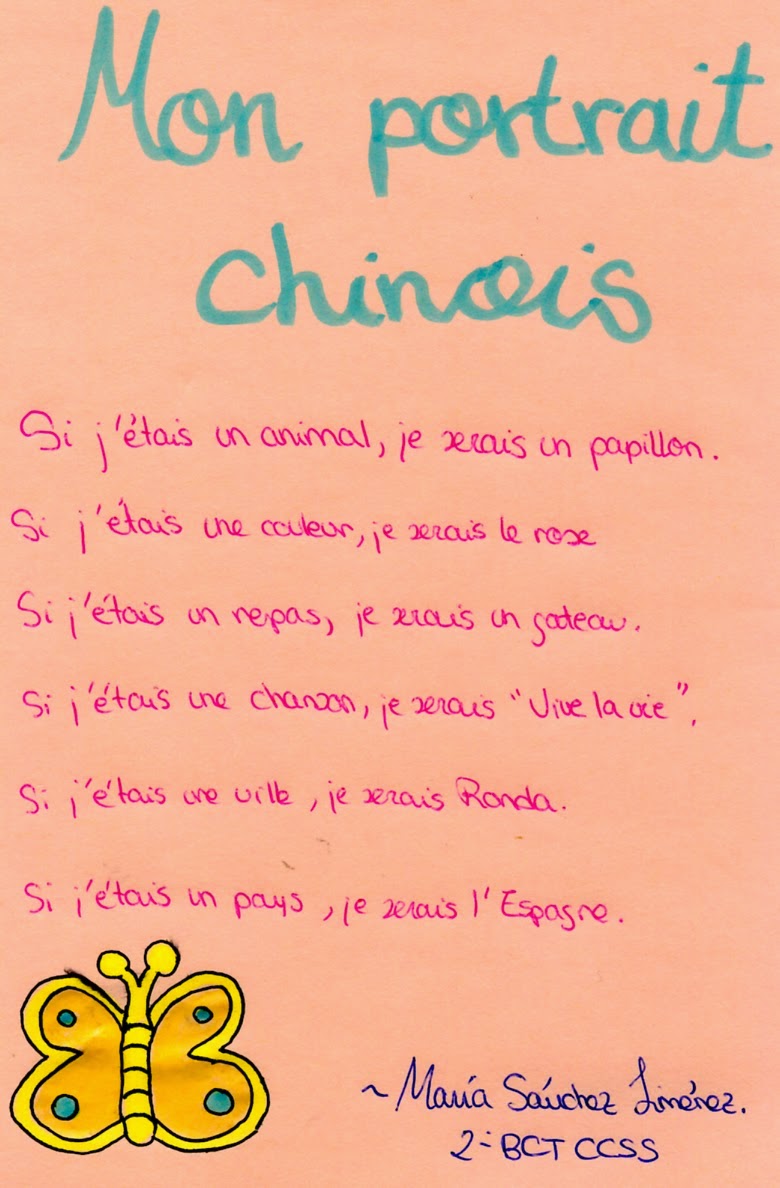 Mon portrait
chinois
Si j'étais un animal, je serais un papillon.
Si j'étais une couleur, je serais le rose
Si j'étais un repas, je serais un gateau.
Si j'étais une chanson, je serais "Vive la vie".
Si j'étais une ville, je serais Ronda.
Si j'étais un pays, je serais l'Espagne.
~ María Sánchez Jiménez.
2º BCT CCSS